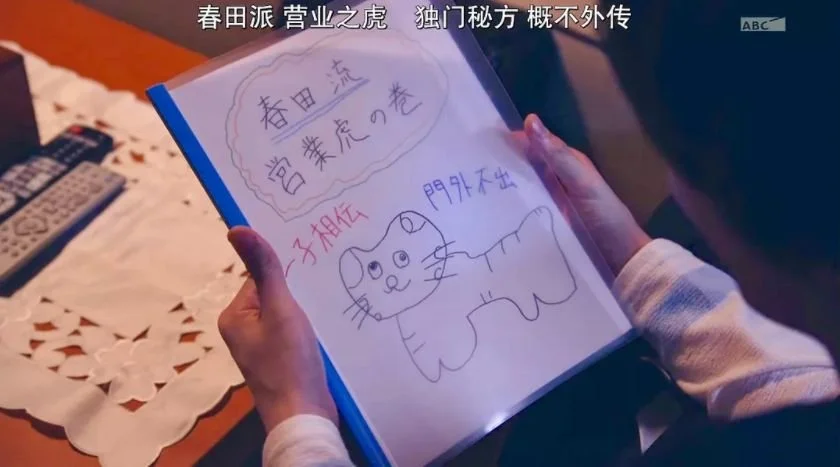 春田派 营业之虎 独门秘方 概不外传
ABC
春田流
営業虎の巻
一子相伝
門外不出